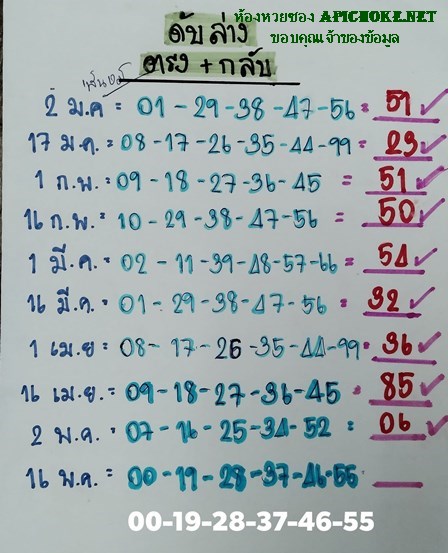 ห้องหวยซอง APICHOKE.NET
ขอบคุณเจ้าของข้อมูล
ดับล่าง
ตรง + กลับ
2 ม.ค = 01 - 29 - 38 - 47 - 56 = 59 ✓
17 ม.ค. = 08 - 17 - 26 - 35 - 44 - 99 = 23 ✓
1 ก.พ. = 09 - 18 - 27 - 36 - 45 = 51 ✓
16 ก.พ. = 10 - 29 - 38 - 47 - 56 = 50 ✓
1 มี.ค. = 02 - 11 - 39 - 48 - 57 - 66 = 54 ✓
16 มี.ค. = 01 - 29 - 38 - 47 - 56 = 32 ✓
1 เม.ย = 08 - 17 - 26 - 35 - 44 - 99 = 36 ✓
16 เม.ย. = 09 - 18 - 27 - 36 - 45 = 85 ✓
2 พ.ค. = 07 - 16 - 25 - 34 - 52 = 06 ✓
16 พ.ค. = 00 - 19 - 28 - 37 - 46 - 55
00-19-28-37-46-55